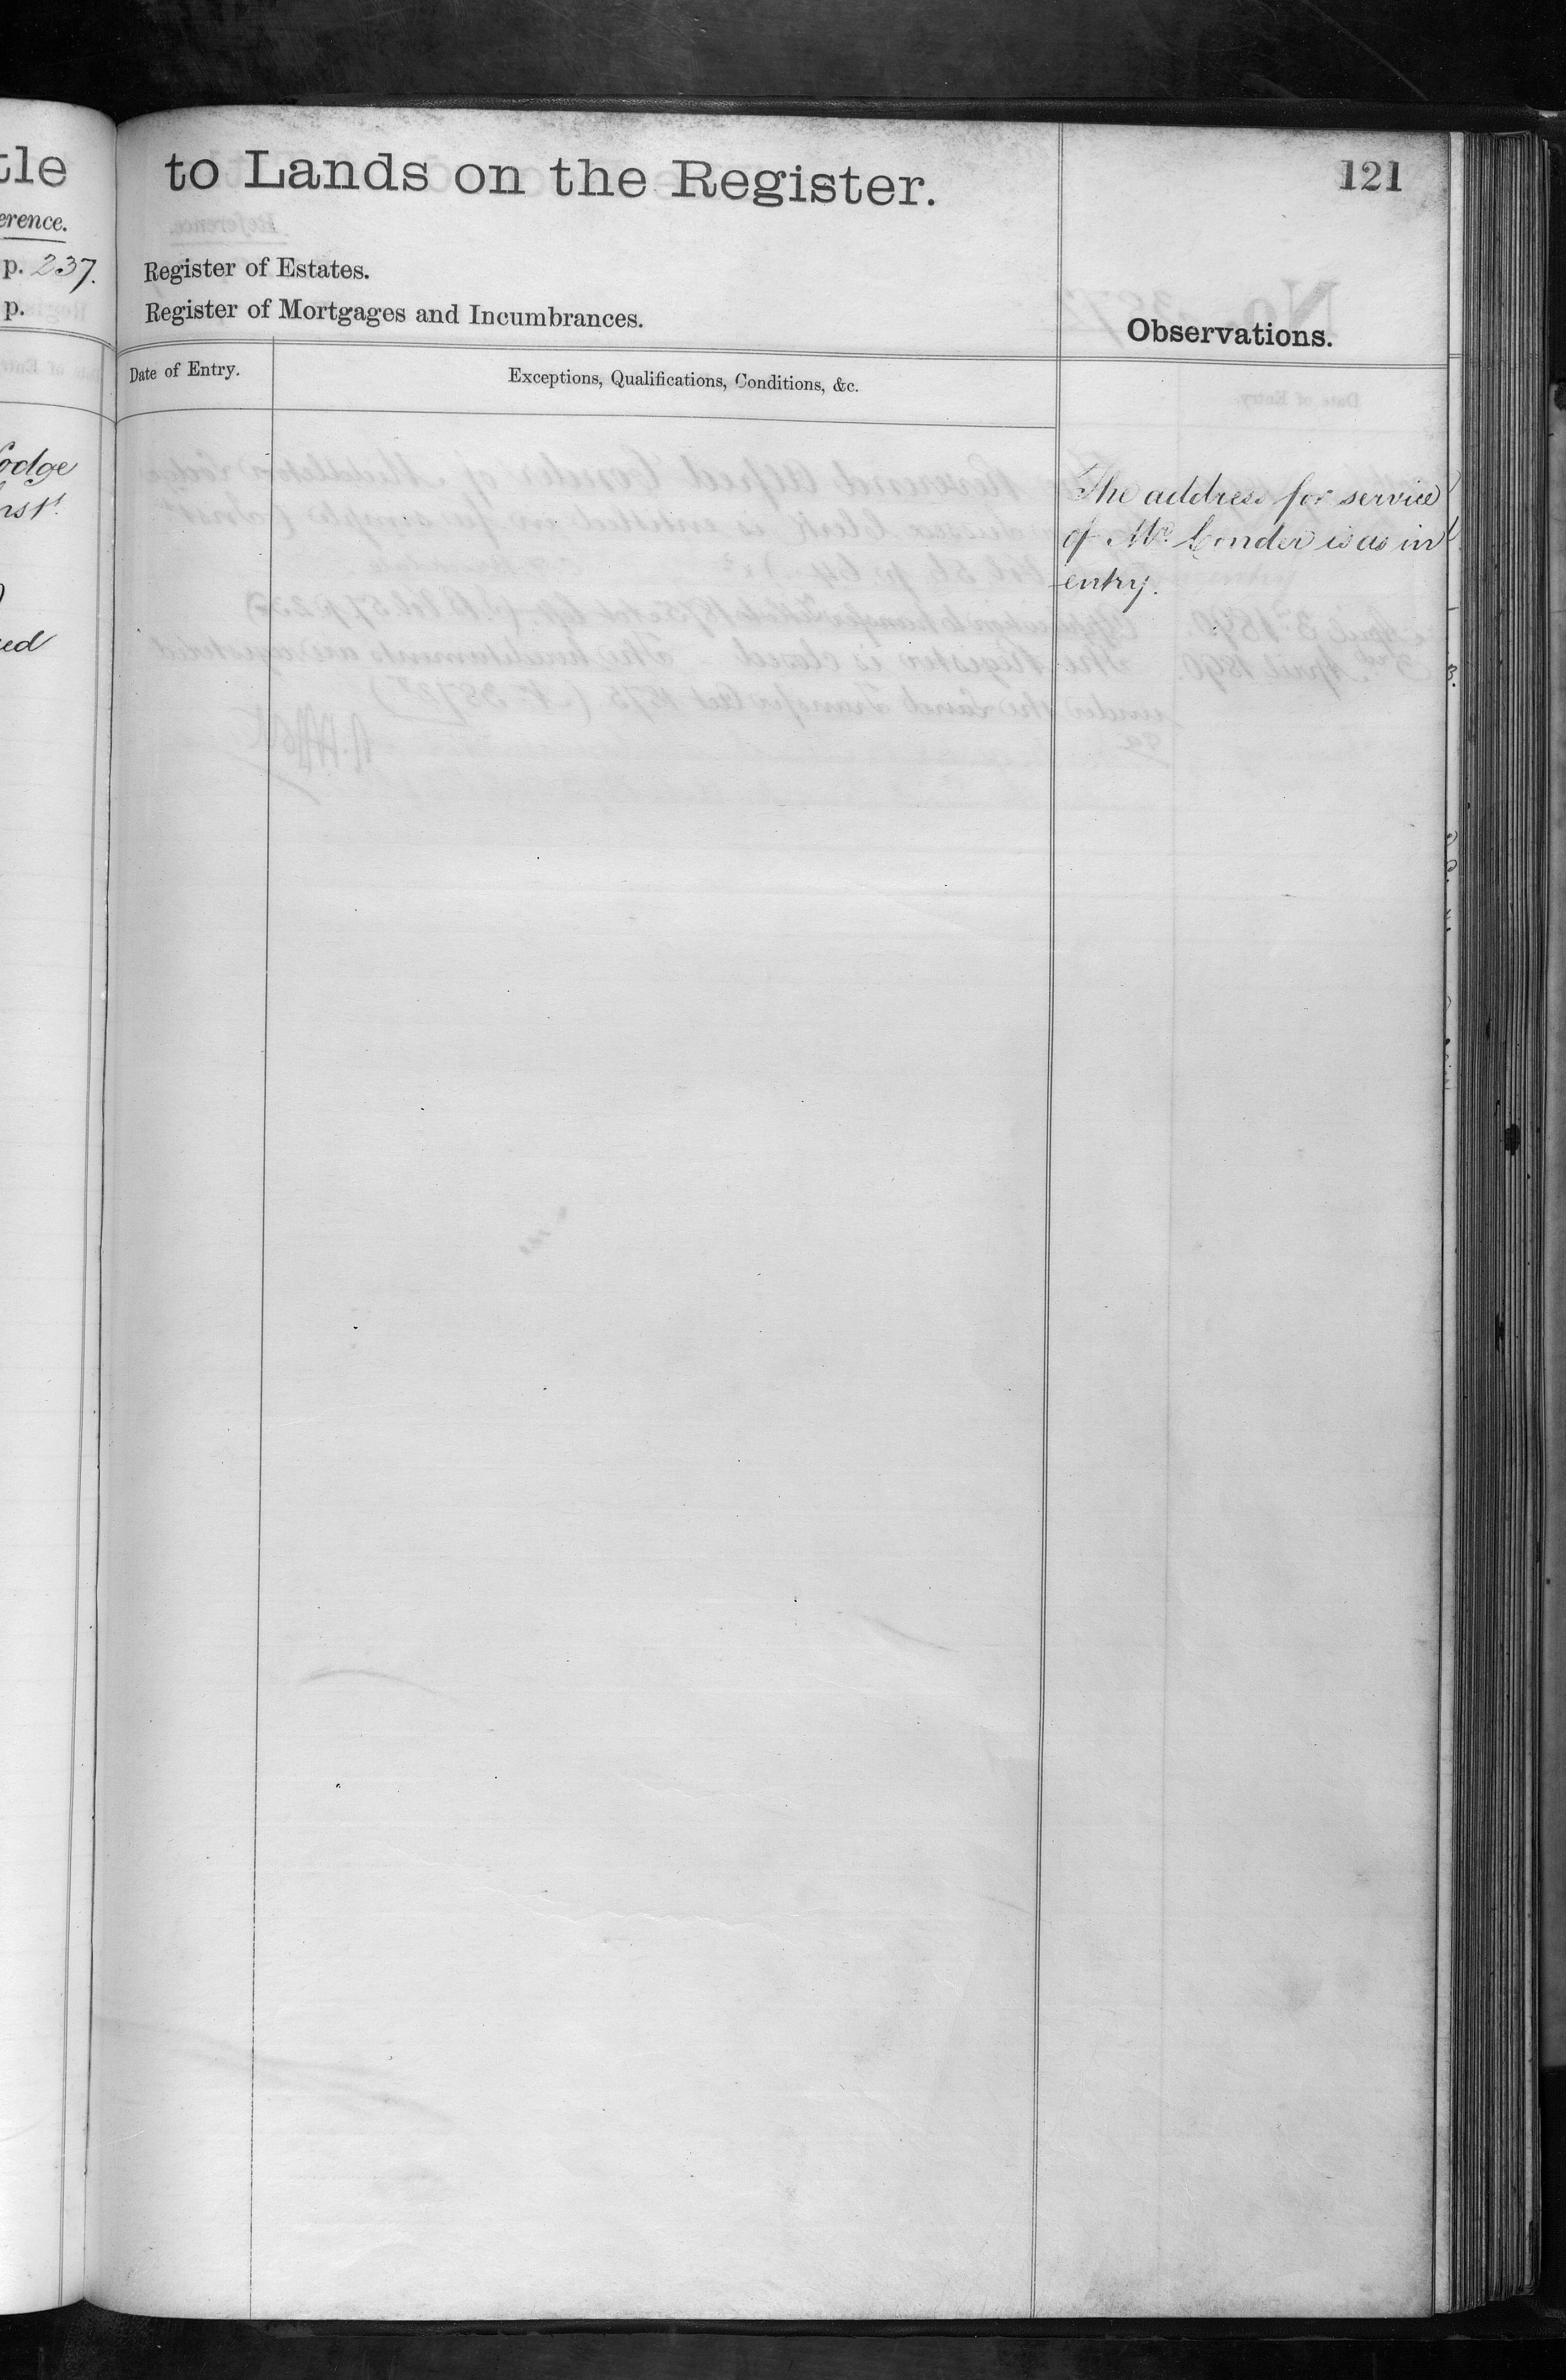 tle
erence.
p. 237.
p.
odge
ed
to Lands on the Register.
121
Register of Estates.
Register of Mortgages and Incumbrances.
Observations.
Date of Entry.
Exceptions, Qualifications, Conditions, &c.
The address for service
of Mr. Conder is as in
entry.